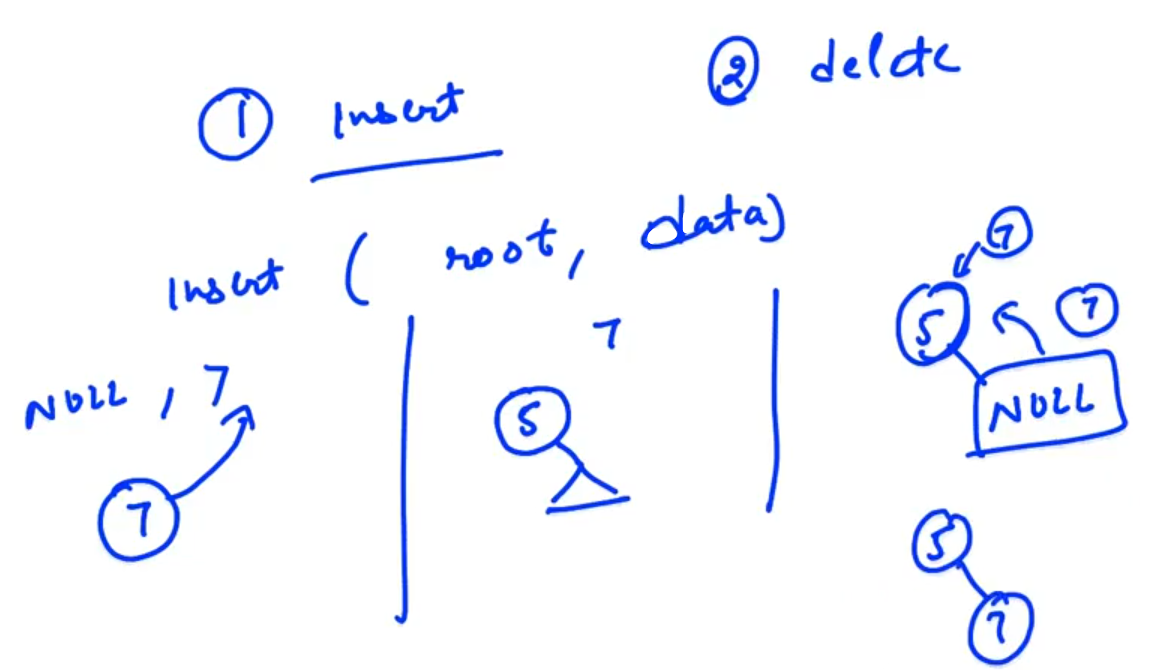 ① Insert
② delete
Insert ( root, data)
NULL , 7
7
7
5
7
5
7
NULL
5
7